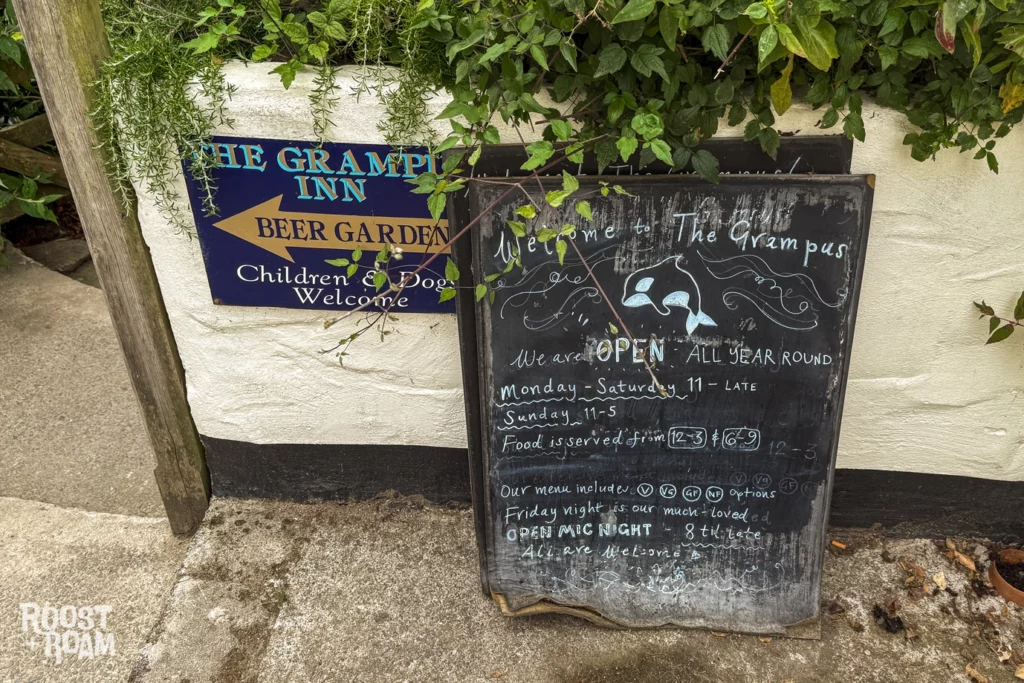 THE GRAMPU
INN
BEER GARDEN
Children & Dogs
Welcome
Welcome to The Grampus
We are OPEN - ALL YEAR ROUND
Monday - Saturday 11 - LATE
Sunday 11-5
Food is served from 12-3 & 6-9
12-3
Our menu includes V VG GF NF options
Friday night is our much-loved
OPEN MIC NIGHT - 8 til late
All are Welcome
ROOST
+ ROAM